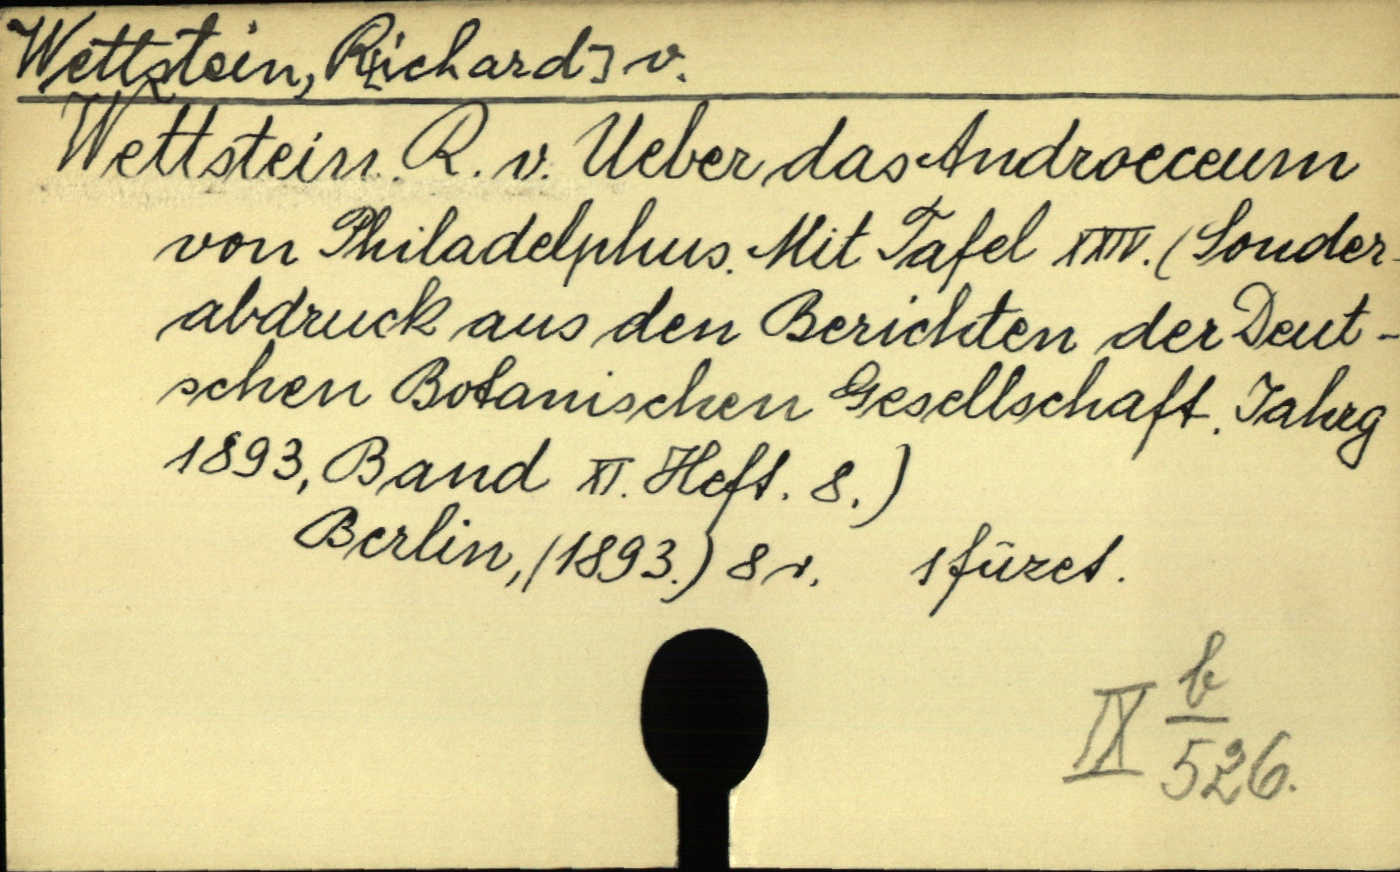 Wettstein, R[ichard] v.
Wettstein. R. v. Ueber das Androeceum
von Philadelphus. Mit Tafel XXIV. (Sonder-
abdruck aus den Berichten der Deut-
schen Botanischen Gesellschaft. Jahrg
1893, Band XI. Heft. 8.)
Berlin, (1893.) 8 r. 1 füzet.
IX b/526.